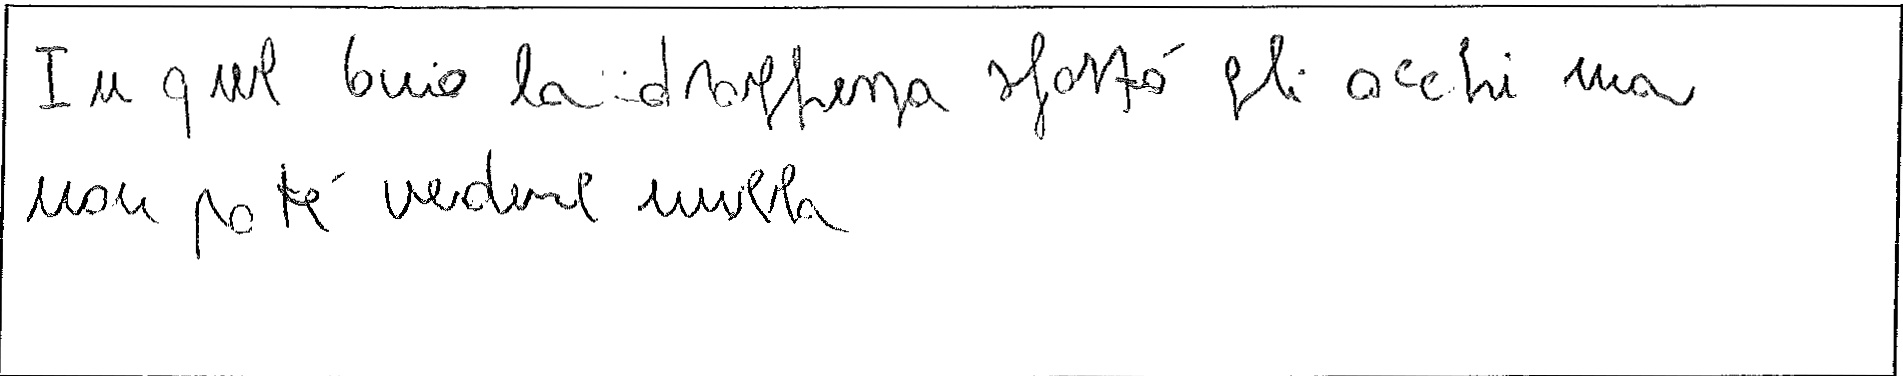 In quel buio la draghessa sforzò gli occhi ma
non poté vedere nulla